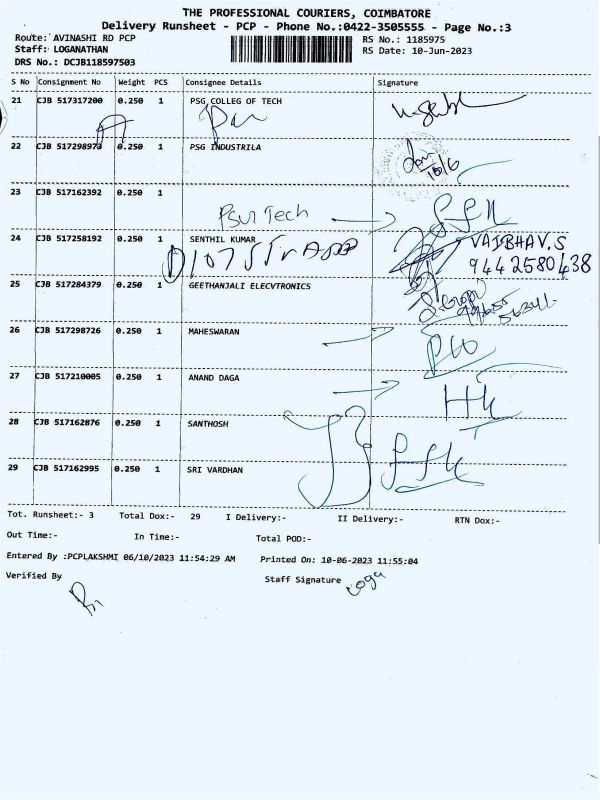 THE PROFESSIONAL COURIERS, COIMBATORE
Delivery Runsheet - PCP - Phone No.:0422-3505555 - Page No.:3
Route: AVINASHI RD PCP
RS No.: 1185975
Staff: LOGANATHAN
RS Date: 10-Jun-2023
DRS No.: DCJB118597503
S No Consignment No Weight PCS Consignee Details Signature
21 CJB 517317200 0.250 1 PSG COLLEG OF TECH
22 CJB 517298973 0.250 1 PSG INDUSTRILA
10/6
23 CJB 517162392 0.250 1
PSG Tech
24 CJB 517258192 0.250 1 SENTHIL KUMAR
VAIBHAV.S
9442580438
25 CJB 517284379 0.250 1 GEETHANJALI ELECVTRONICS
26 CJB 517298726 0.250 1 MAHESWARAN
27 CJB 517210005 0.250 1 ANAND DAGA
28 CJB 517162876 0.250 1 SANTHOSH
29 CJB 517162995 0.250 1 SRI VARDHAN
Tot. Runsheet:- 3 Total Dox:- 29 I Delivery:- II Delivery:- RTN Dox:-
Out Time:- In Time:- Total POD:-
Entered By :PCPLAKSHMI 06/10/2023 11:54:29 AM Printed On: 10-06-2023 11:55:04
Verified By Staff Signature loga